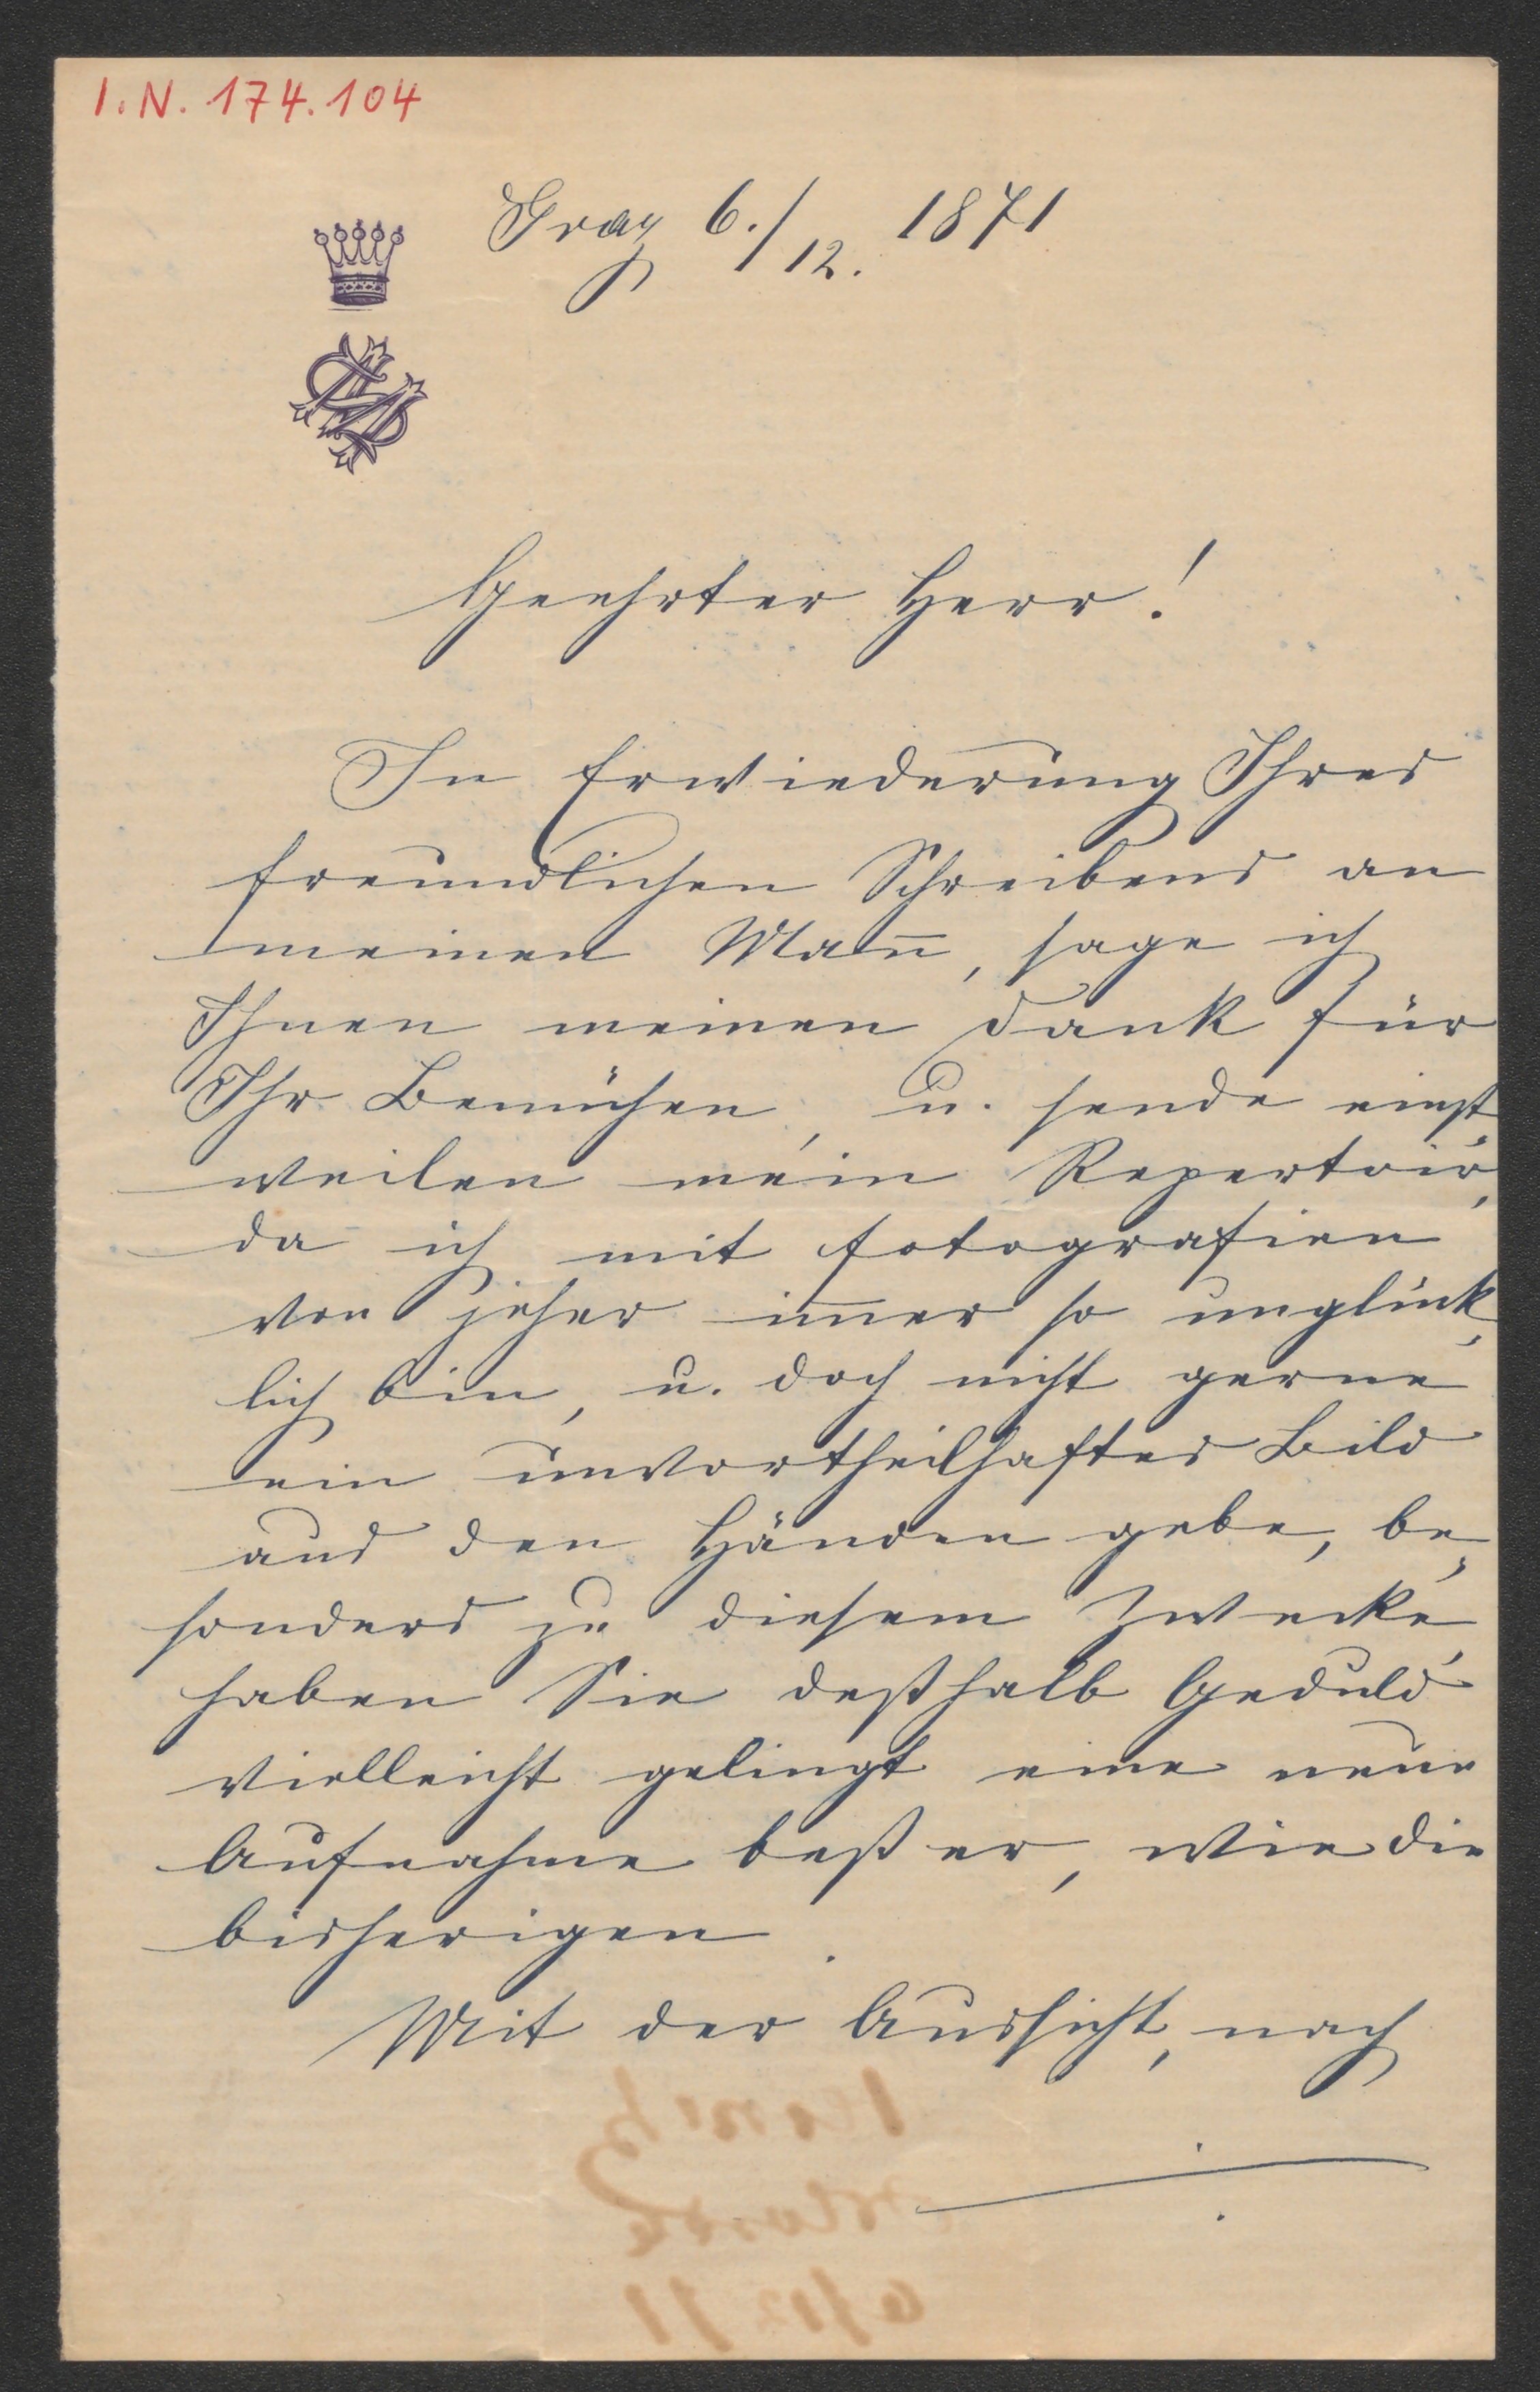 I. N. 174.104
Graz 6./12. 1871
Geehrter Herr!
In Erwiederung Ihres
freundlichen Schreibens an
meinen Mañ, sage ich
Ihnen meinen Dank für
Ihr Bemühen, u. sende einst,
weilen mein Repertoir,
da ich mit Fotografien
von jeher im̅er so unglück,
lich bin, u. doch nicht gerne
ein unvortheilhaftes Bild
aus den Händen gebe, be,
sonders zu diesem Zwecke,
haben Sie deßhalb Geduld
vielleicht gelingt eine neue
Aufnahme beßer, wie die
bisherigen.
Mit der Aussicht, nach